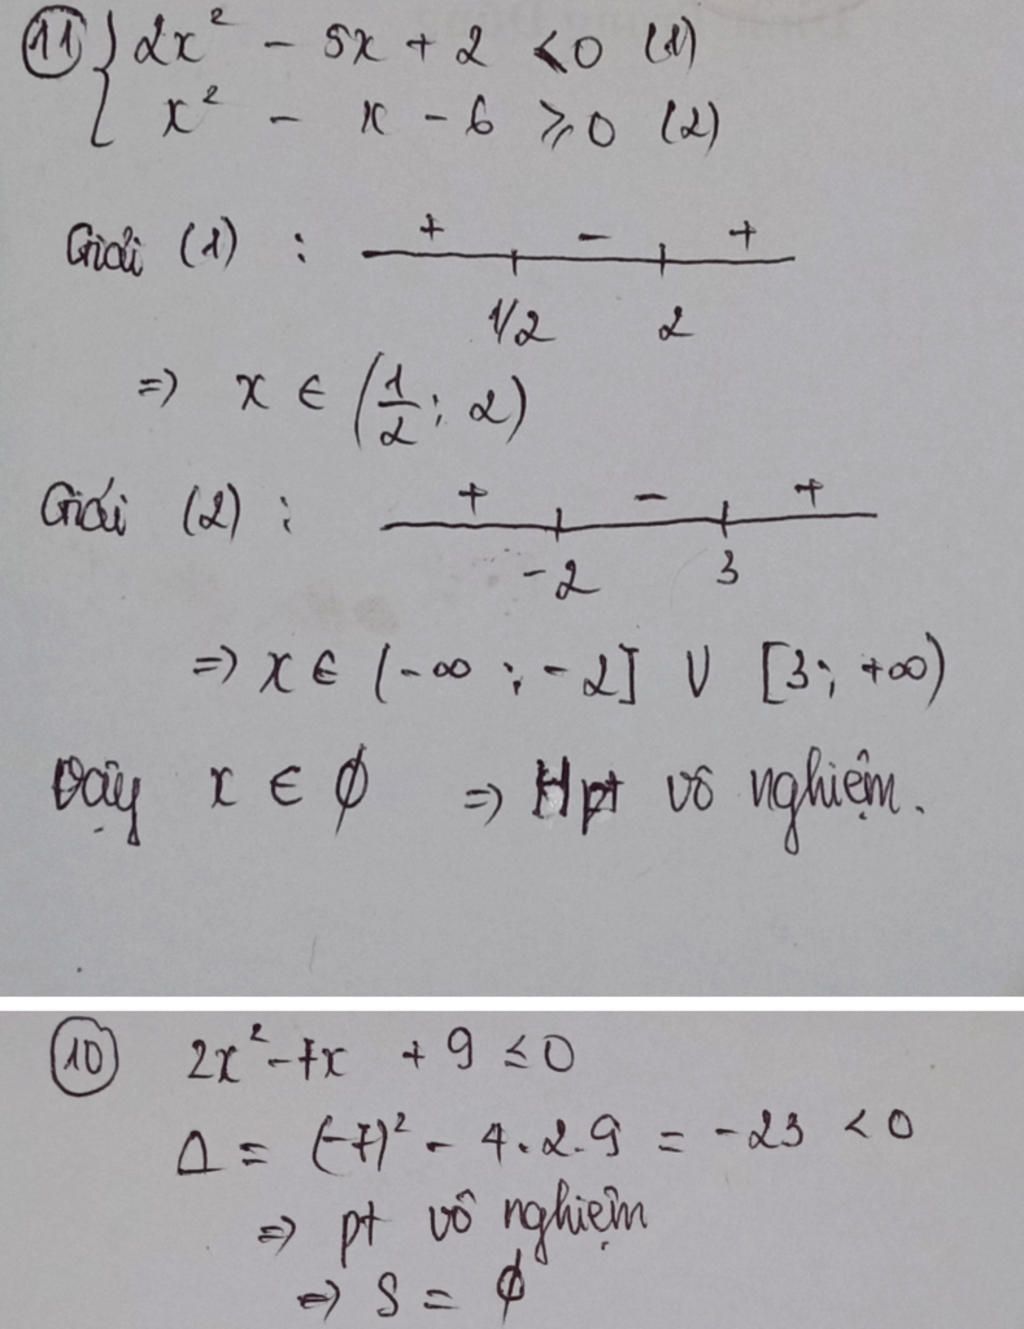 ⑪ { 2x² - 5x + 2 < 0 (1)
x² - x - 6 ⩾ 0 (2)
Giải (1) : + - +
1/2 2
=> x ∈ (1/2 ; 2)
Giải (2) : + - +
-2 3
=> x ∈ (-∞ ; -2] ∪ [3 ; +∞)
Vậy x ∈ ∅ => Hpt vô nghiệm.
⑩ 2x² - 7x + 9 ≤ 0
Δ = (-7)² - 4.2.9 = -23 < 0
=> pt vô nghiệm
=> S = ∅